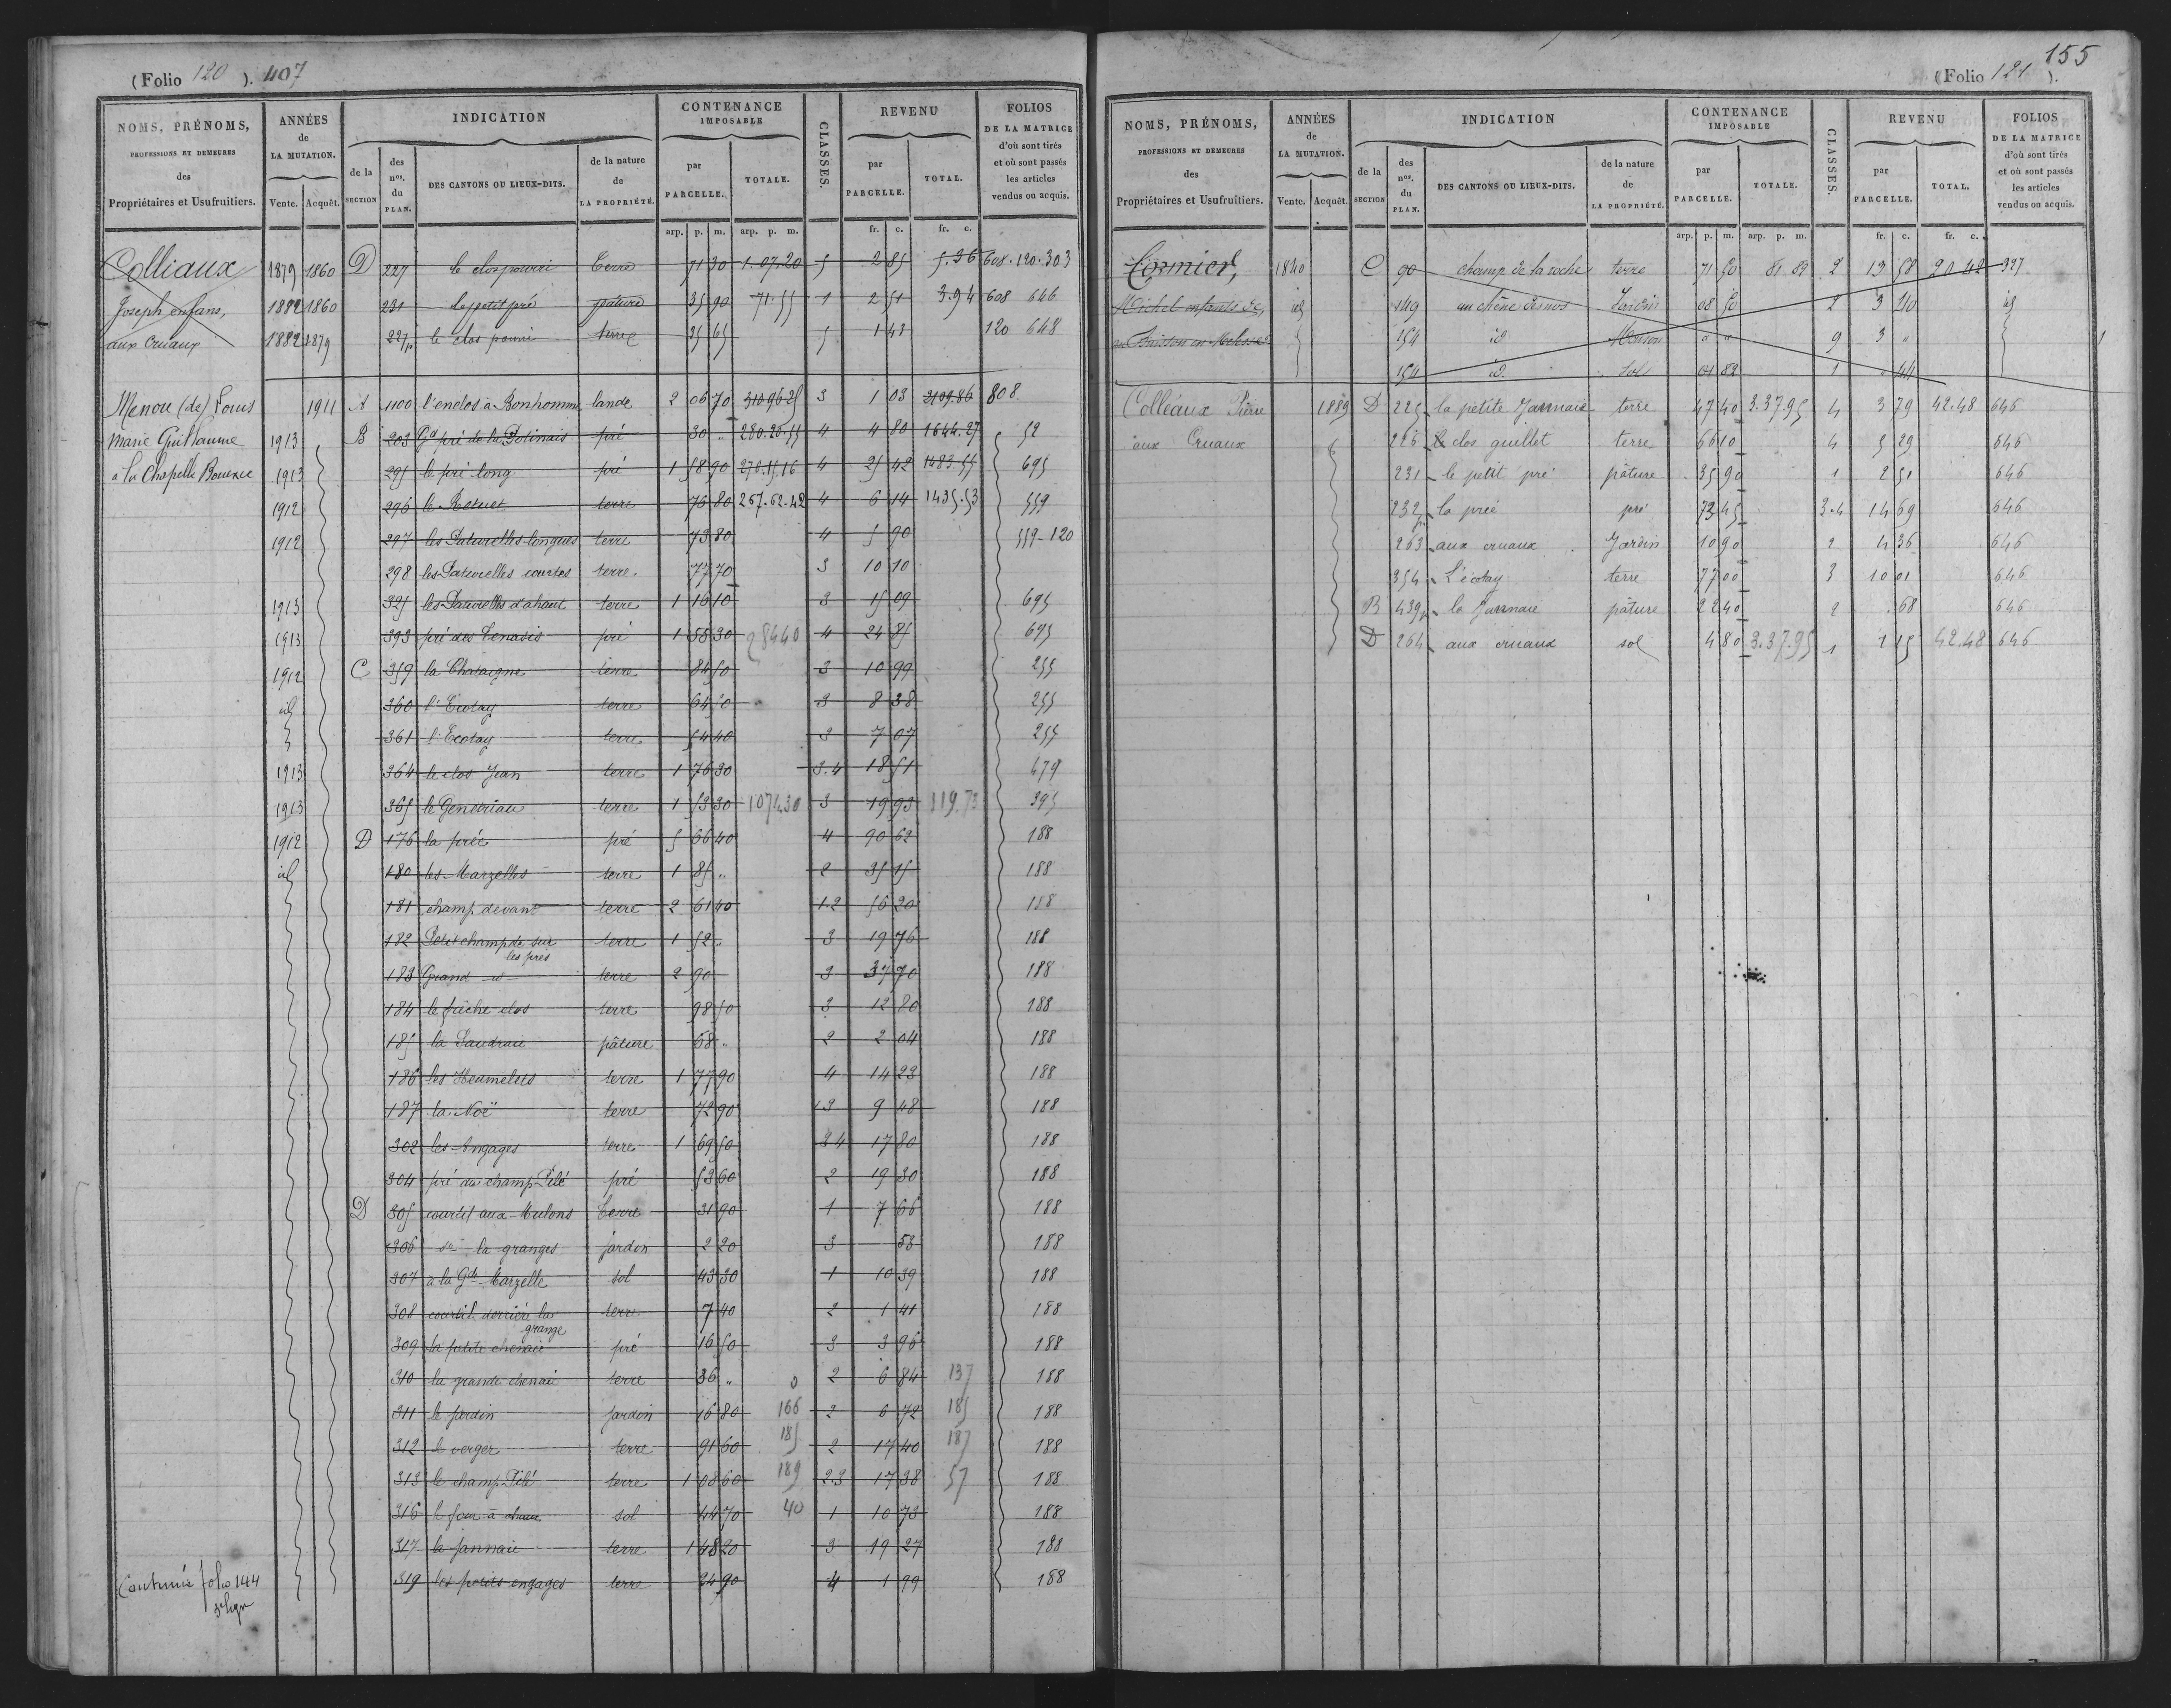 (Folio 120 ). 407
NOMS, PRÉNOMS,
PROFESSIONS ET DEMEURES
des
Propriétaires et Usufruitiers.
ANNÉES
de
LA MUTATION.
Vente. Acquêt.
INDICATION
de la
SECTION
des
nos.
du
PLAN.
DES CANTONS OU LIEUX-DITS.
de la nature
de
LA PROPRIÉTÉ.
CONTENANCE
IMPOSABLE
par
PARCELLE.
TOTALE.
CLASSES.
REVENU
par
PARCELLE.
TOTAL.
FOLIOS
DE LA MATRICE
d'où sont tirés
et où sont passés
les articles
vendus ou acquis.
arp. p. m. arp. p. m. fr. c. fr. c.
Colliaux 1879 1860 D 227 le clos pourri Terre 71 30 1.07.20 5 2 85 5.36 608.120.303
Joseph enfans, 1882 1860 231 le petit pré pature 35 90 71.55 1 2 51 3.94 608 646
aux cruaux 1882 1879 227p le clos pourri terre 35 65 5 1 43 120 648
Menou (de) Louis 1911 A 1100 l'enclos à Bonhomme lande 2 06 70 310.96.25 3 1 03 2109.86 808
Marie Guillaume 1913 B 203 Gd pré de la Potinais pré 30 " 280.20.55 4 4 80 1644.27 52
à la Chapelle Bouexic 1913 295 le pré long pré 1 58 90 270.15.16 4 25 42 1483.55 695
1912 296 le Rotuet terre 76 80 267.62.42 4 6 14 1435.53 559
1912 297 les Paturelles longues terre 73 80 4 5 90 559-120
298 les Paturelles courtes terre. 77 70 3 10 10
1913 325 les Paturelles d'ahaut terre 1 16 10 3 15 09 695
1913 393 pré des Lenasis pré 1 55 30 28440 4 24 85 695
1912 C 359 la Chataigne terre 84 50 3 10 99 255
id 360 l'Ecotay terre 64 50 3 8 38 255
361 l'Ecotay terre 54 40 3 7 07 255
1913 364 le clos Jean terre 1 76 30 3.4 18 51 479
1913 365 le Gendriau terre 1 53 30 107430 3 19 93 319.73 395
1912 D 176 la prée pré 5 66 40 4 90 62 188
id 180 les Marzelles terre 1 85 " 2 35 15 188
181 champ devant terre 2 61 40 1.2 56 20 188
182 Petit champ de sur terre 1 52 " 3 19 76 188
les prés
183 Grand id terre 2 90 3 37 70 188
184 le frêche clos terre 98 50 3 12 80 188
185 la Landraie pâture 68 " 2 2 04 188
186 les Heamelets terre 1 77 90 4 14 23 188
187 la Noë terre 72 90 3 9 48 188
302 les Engages terre 1 69 50 3 4 17 80 188
304 pré du champ Pilé pré 53 60 2 19 30 188
D 305 courtil aux Mulons Terre 31 90 1 7 66 188
306 la granges jardin 2 20 3 53 188
307 à la Gde Marzelle sol 43 30 1 10 39 188
308 courtil derrière la terre 7 40 2 1 41 188
grange
309 la petite chenaie pré 16 50 3 3 96 188
310 la grande chenaie terre 36 " 0 2 6 84 137 188
311 le jardin jardin 16 80 166 2 6 72 185 188
312 le verger terre 91 60 185 2 17 40 187 188
313 le champ Pilé terre 1 08 60 189 2.3 17 38 57 188
316 le four à chaux sol 44 70 40 1 10 73 188
317 la jannaie terre 1 48 20 3 19 27 188
Continué folio 144 319 les petits engages terre 24 90 4 1 99 188
3e ligne
155
(Folio 121 ).
NOMS, PRÉNOMS,
PROFESSIONS ET DEMEURES
des
Propriétaires et Usufruitiers.
ANNÉES
de
LA MUTATION.
Vente. Acquêt.
INDICATION
de la
SECTION
des
nos.
du
PLAN.
DES CANTONS OU LIEUX-DITS.
de la nature
de
LA PROPRIÉTÉ.
CONTENANCE
IMPOSABLE
par
PARCELLE.
TOTALE.
CLASSES.
REVENU
par
PARCELLE.
TOTAL.
FOLIOS
DE LA MATRICE
d'où sont tirés
et où sont passés
les articles
vendus ou acquis.
arp. p. m. arp. p. m. fr. c. fr. c.
Cormier, 1840 C 90 champ de la roche terre 71 50 81 82 2 13 58 20 42 327
Michel enfants de, id 149 au chêne Jardin 08 50 2 3 40 id
au Buisson en 154 id Maison " " 9 3 "
154 id. Sol 01 82 1 " 44
Colléaux Pierre 1889 D 225 la petite Jannaie terre 47 40 3.37.95 4 3 79 42.48 646
aux Cruaux 226 le clos guillet terre 66 10 4 5 29 646
231 le petit pré pâture 35 90 1 2 51 646
232p la prée pré 73 45 3.4 14 69 646
263 aux cruaux Jardin 10 90 2 4 36 646
354 L'écotay terre 77 00 3 10 01 646
B 439p la Jannaie pâture 22 40 2 . 68 646
D 264 aux cruaux sol 4 80 3.37.95 1 1 15 42.48 646